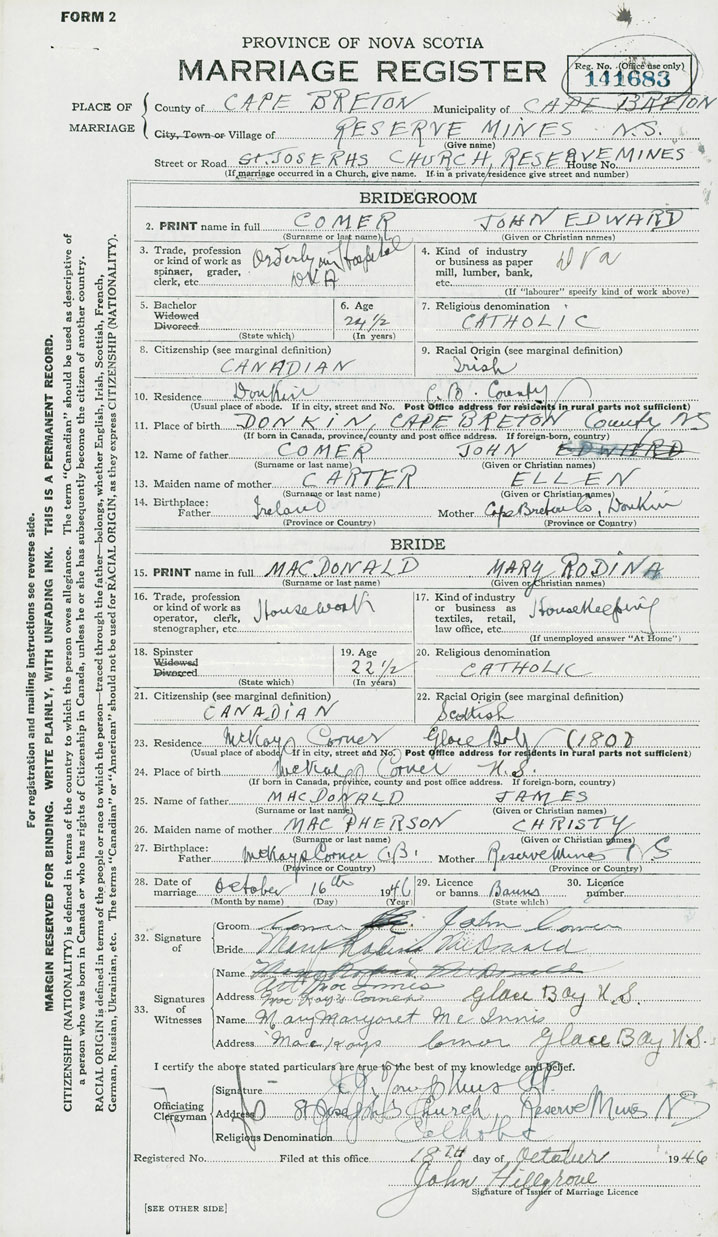 FORM 2
PROVINCE OF NOVA SCOTIA
MARRIAGE REGISTER
Reg. No. (Office use only)
141683
PLACE OF MARRIAGE
County of CAPE BRETON Municipality of CAPE BRETON
City, Town or Village of RESERVE MINES N.S.
(Give name)
Street or Road St. JOSEPHS CHURCH, RESERVE MINES House No.
(If marriage occurred in a Church, give name. If in a private residence give street and number)
BRIDEGROOM
2. PRINT name in full COMER JOHN EDWARD
(Surname or last name) (Given or Christian names)
3. Trade, profession or kind of work as spinner, grader, clerk, etc. Orderly in Hospital DVA
4. Kind of industry or business as paper mill, lumber, bank, etc. DVA
(If "labourer" specify kind of work above)
5. Bachelor Widowed Divorced
(State which)
6. Age 24 1/2
(In years)
7. Religious denomination CATHOLIC
8. Citizenship (see marginal definition) CANADIAN
9. Racial Origin (see marginal definition) Irish
10. Residence Donkin C.B. County
(Usual place of abode. If in city, street and No. Post Office address for residents in rural parts not sufficient)
11. Place of birth DONKIN, CAPE BRETON County NS
(If born in Canada, province, county and post office address. If foreign-born, country)
12. Name of father COMER JOHN EDWIERD
(Surname or last name) (Given or Christian names)
13. Maiden name of mother CARTER ELLEN
(Surname or last name) (Given or Christian names)
14. Birthplace: Father Ireland Mother Cape Breton Co, Donkin
(Province or Country) (Province or Country)
BRIDE
15. PRINT name in full MACDONALD MARY RODINA
(Surname or last name) (Given or Christian names)
16. Trade, profession or kind of work as operator, clerk, stenographer, etc. Housework
17. Kind of industry or business as textiles, retail, law office, etc. Housekeeping
(If unemployed answer "At Home")
18. Spinster Widowed Divorced
(State which)
19. Age 22 1/2
(In years)
20. Religious denomination CATHOLIC
21. Citizenship (see marginal definition) CANADIAN
22. Racial Origin (see marginal definition) Scottish
23. Residence McKay's Corner Glace Bay
(Usual place of abode. If in city, street and No. Post Office address for residents in rural parts not sufficient)
24. Place of birth McKay's Corner N.S.
(If born in Canada, province, county and post office address. If foreign-born, country)
25. Name of father MACDONALD JAMES
(Surname or last name) (Given or Christian names)
26. Maiden name of mother MACPHERSON CHRISTY
(Surname or last name) (Given or Christian names)
27. Birthplace: Father McKays Corner C.B. Mother Reserve Mines NS
(Province or Country) (Province or Country)
28. Date of marriage October 16th 1946
(Month by name) (Day) (Year)
29. Licence or banns Banns
(State which)
30. Licence number
32. Signature of
Groom Comer John Comer
Bride Mary Rodina McDonald
33. Signatures of Witnesses
Name
Mac Innis
Address MacKays Corner Glace Bay N.S.
Name Mary Margaret Mc Innis
Address MacKays Corner Glace Bay N.S.
I certify the above stated particulars are true to the best of my knowledge and belief.
Officiating Clergyman
Signature
Address St Joseph's Church Reserve Mines NS
Religious Denomination Catholic
Registered No. Filed at this office 18th day of October 1946
John Hillgrove
Signature of Issuer of Marriage Licence
[SEE OTHER SIDE]
For registration and mailing instructions see reverse side.
MARGIN RESERVED FOR BINDING. WRITE PLAINLY, WITH UNFADING INK. THIS IS A PERMANENT RECORD.
CITIZENSHIP (NATIONALITY) is defined in terms of the country to which the person owes allegiance. The term "Canadian" should be used as descriptive of
a person who was born in Canada or who has rights of Citizenship in Canada, unless he or she has subsequently become the citizen of another country.
RACIAL ORIGIN is defined in terms of the people or race to which the person—traced through the father—belongs, whether English, Irish, Scottish, French,
German, Russian, Ukrainian, etc. The terms "Canadian" or "American" should not be used for RACIAL ORIGIN, as they express CITIZENSHIP (NATIONALITY).